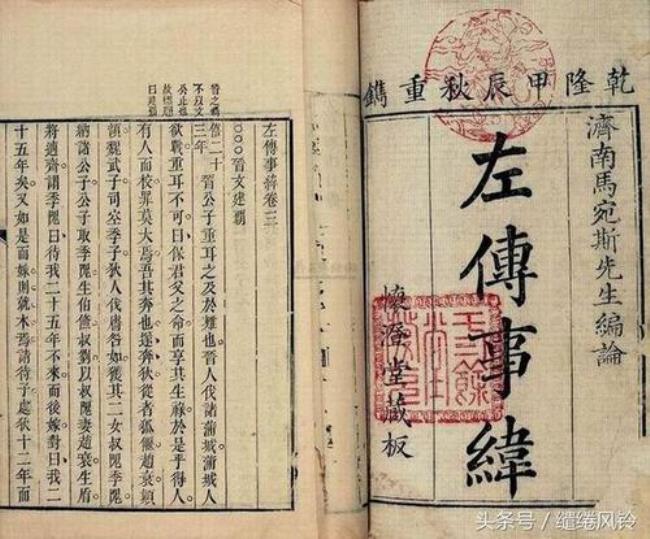 乾隆甲辰秋重鐫
濟南馬宛斯先生編論
左傳事緯
懷澄堂藏板
晉之霸
不以文
公止也
故標題
曰建霸
左傳事緯卷三
○○○晉文建霸
僖二十三年 晉公子重耳之及於難也晉人伐諸蒲城蒲城人
欲戰重耳不可曰保君父之命而享其生祿於是乎得人
有人而校罪莫大焉吾其奔也遂奔狄從者狐偃趙衰顛
頡魏武子司空季子狄人伐廧咎如獲其二女叔隗季隗
納諸公子公子取季隗生伯儵叔劉以叔隗妻趙衰生盾
將適齊謂季隗曰待我二十五年不來而後嫁對曰我二
十五年矣又如是而嫁則就木焉請待子處狄十二年而
头条号 / 缱绻风铃